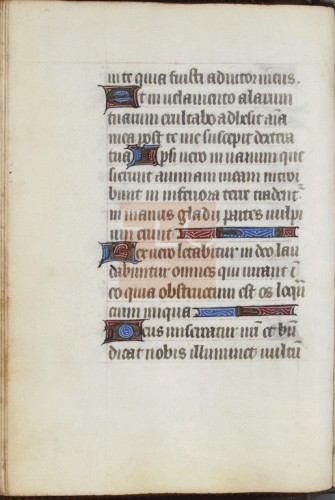 in te quia fuisti adiutor meus.
Et in uelamento alarum
tuarum exultabo adhesit aīa
mea post te me suscepit dextera
tua Ipsi uero in uanum que
sierunt animam meam introi
bunt in inferiora terre tradent᷑
in manus gladii partes uulpi
um erunt
Rex uero letabitur in deo lau
dabuntur omnes qui iurant ī
eo quia obstructum est os loquē
cium iniqua
Deus misereatur nr̄i et bn̄
dicat nobis illuminet uultū